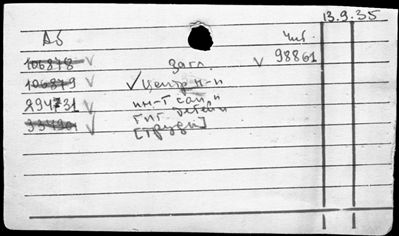 13.9.35
Аб Чит.
106878 √ Загл. √ 98861
106879 √ √ Центр н-и
294731 √ ин-т сан и
33490 √ гиг. детей
[Труды]